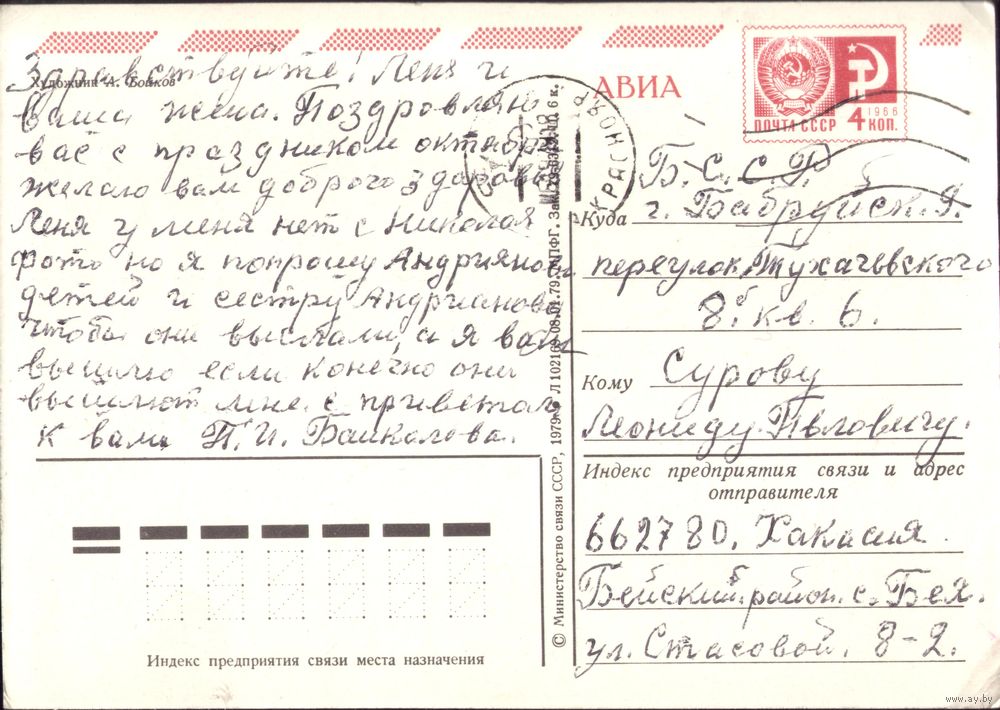 Здравствуйте! Леня и
Художник А. Бойков
ваша жена. Поздровляю
вас с праздником октября
желаю вам доброго здаровья
Леня у меня нет с Николая
фото но я попрошу Андрияновы
детей и сестру Андрианову
чтоба они выслали, а я вам
вышлю если конечно они
вышлют мне. с приветом
к вам П. И. Байкалова.
АВИА
1966
ПОЧТА СССР 4 КОП.
КРАСНОЯР
Б. С. С. Р.
Куда г. Бабруйск. 9.
переулок, Тухачевского
8б. кв. 6.
Кому Сурову
Леониду. Пвловичу.
Индекс предприятия связи и адрес
отправителя
662780. Хакасия
Бейский район. с. Бея.
ул. Стасовой. 8-2.
Индекс предприятия связи места назначения
© Министерство связи СССР, 1979. Л 102169 08.01.79. ППФГ. Зак. 6 к.
www.ay.by